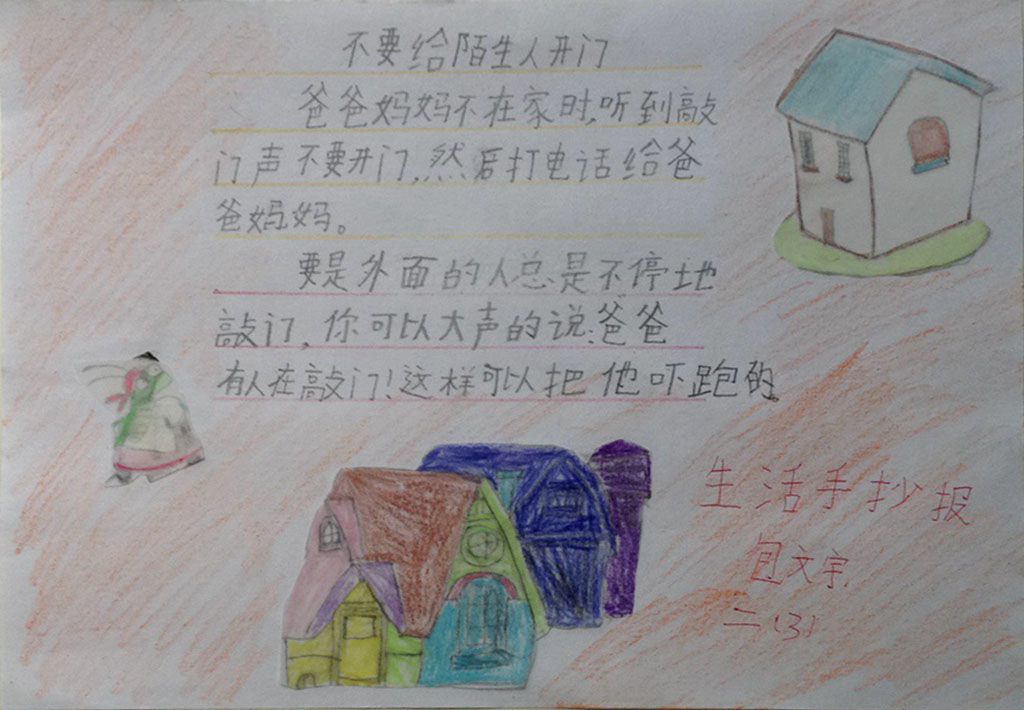 不要给陌生人开门
爸爸妈妈不在家时,听到敲
门声不要开门,然后打电话给爸
爸妈妈。
要是外面的人总是不停地
敲门,你可以大声的说:爸爸
有人在敲门!这样可以把他吓跑的。
生活手抄报
包文宇
二(3)